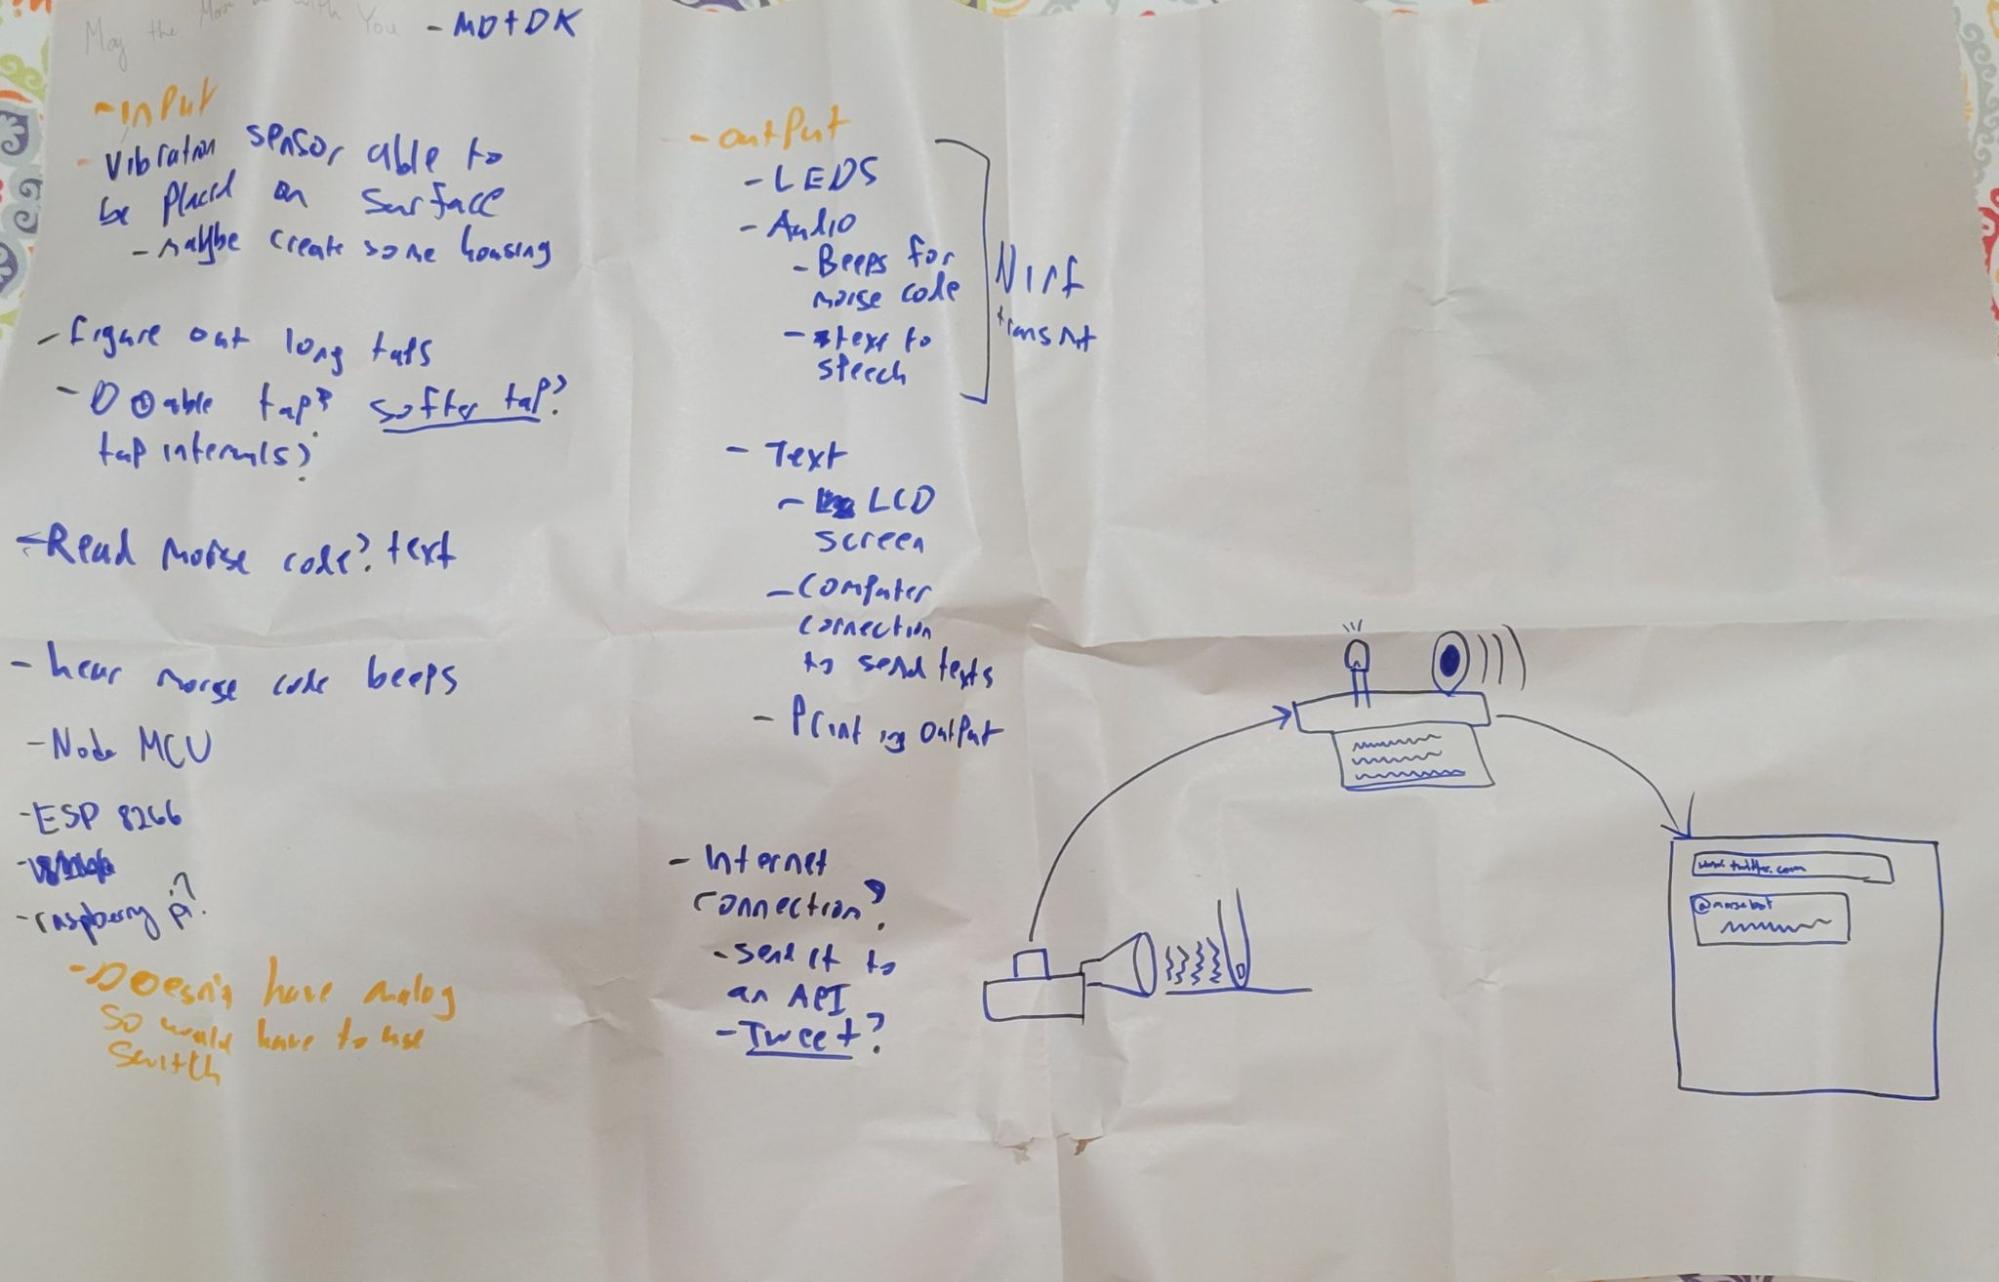 May the Mor be with You - MD+DK
- Input
- Vibration sensor able to
be placed on surface
- maybe create some housing
- figure out long taps
- Double tap? softer tap?
tap intervals?
- Read morse code? text
- hear morse code beeps
- Node MCU
- ESP 8266
- raspberry pi?
- Doesn't have analog
so would have to use
switch
- output
- LEDS
- Audio
- Beeps for
morse code
- text to
speech
- Text
- LCD
screen
- Computer
connection
to send texts
- Printing output
- Internet
connection?
- send it to
an API
- Tweet?
www.twitter.com
@morsebot